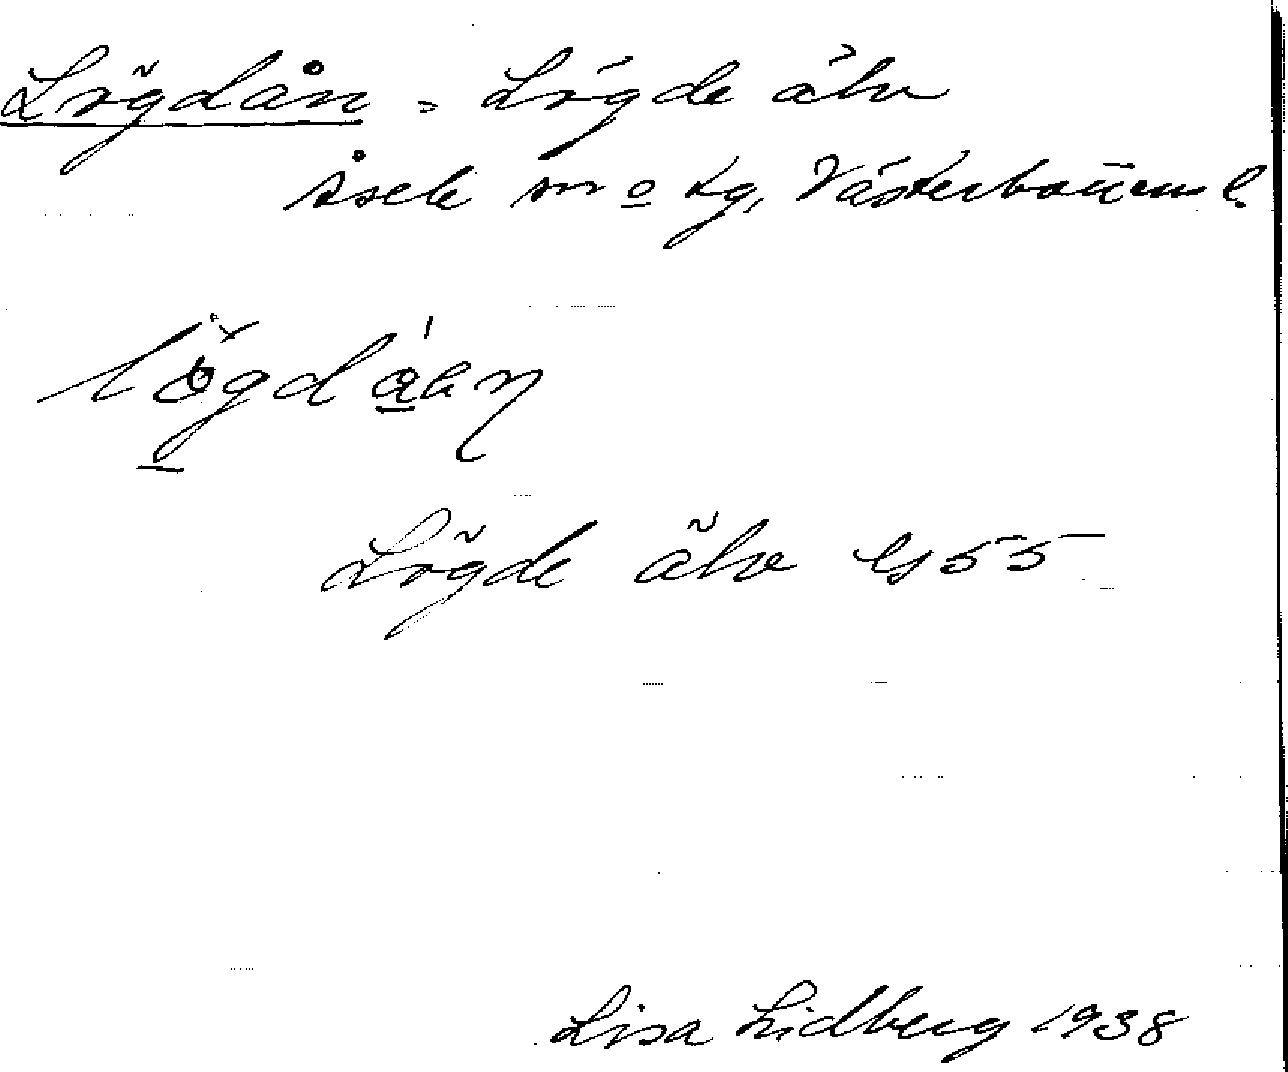 Lögdån = Lögde älv
Åsele sn o tg, Västerbottens l.
lögdåan
Lögde älv GS 55
Lisa Lidberg 1938